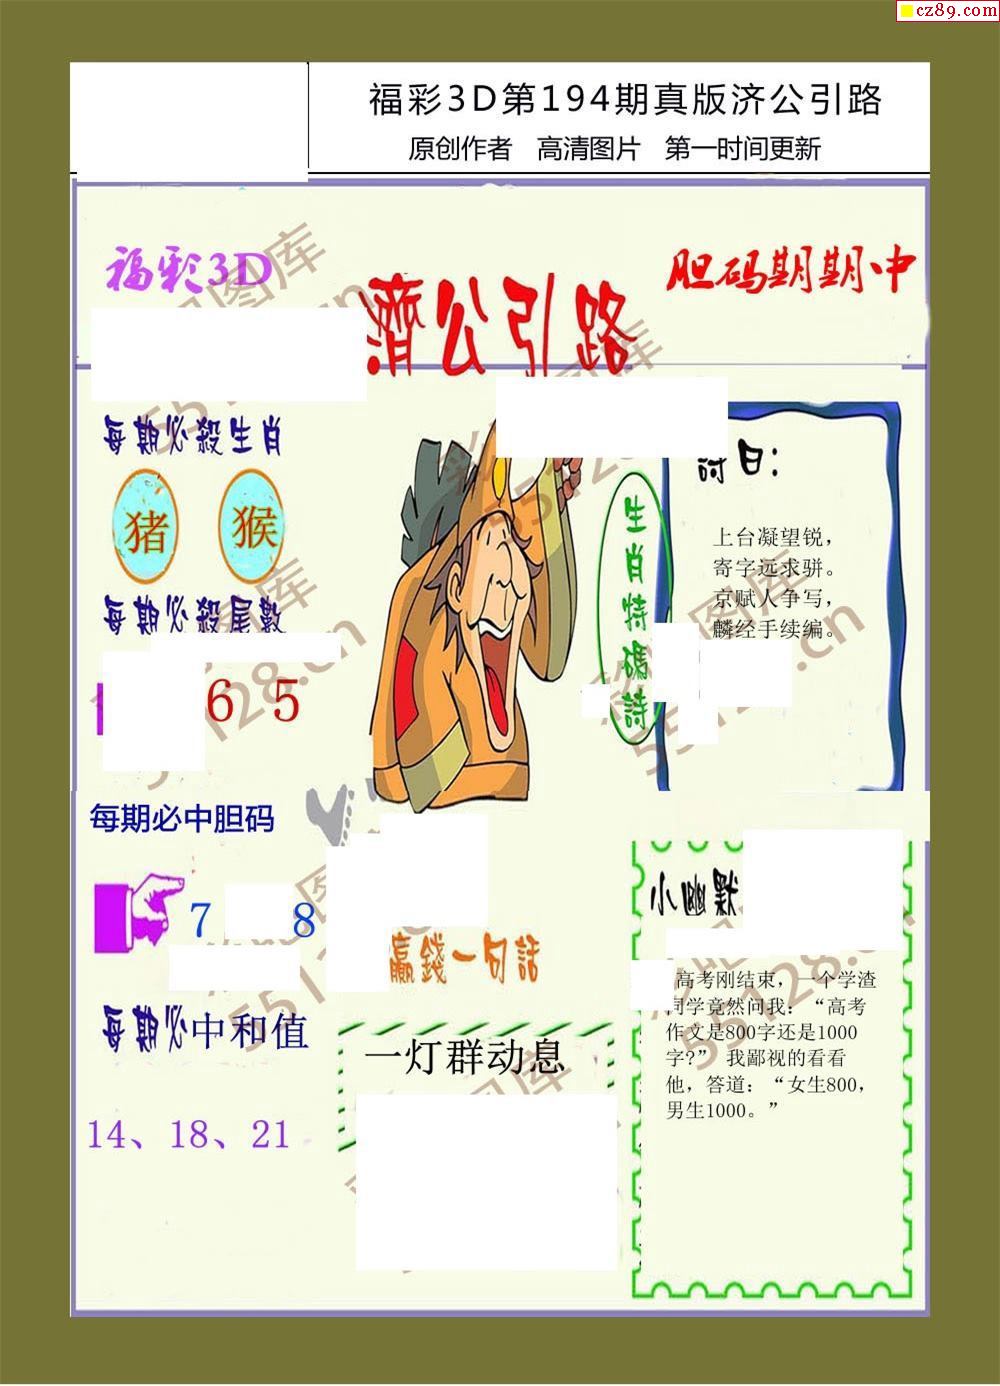 cz89.com
福彩3D第194期真版济公引路
原创作者 高清图片 第一时间更新
福彩3D
濟公引路
胆码期期中
每期必殺生肖
猪 猴
每期必殺尾數
6 5
每期必中胆码
7 8
每期必中和值
14、18、21
生肖特碼詩
詩曰：
上台凝望锐，
寄字远求骈。
京赋人争写，
麟经手续编。
贏錢一句話
一灯群动息
小幽默
高考刚结束，一个学渣
同学竟然问我：“高考
作文是800字还是1000
字?” 我鄙视的看看
他，答道：“女生800，
男生1000。”
彩吧图库
55128.cn